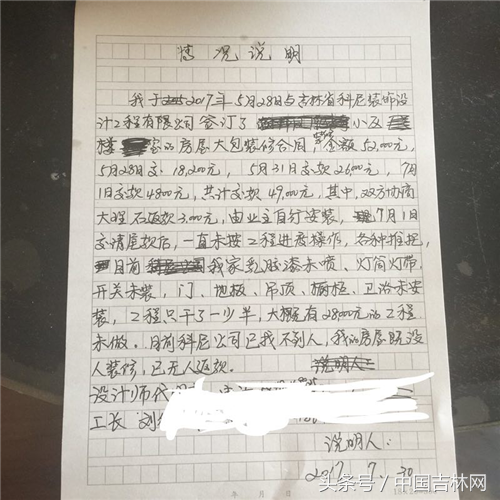 情况说明
我于2017年5月28日与吉林省科尼装饰设
计工程有限公司签订了 小区
楼 室的房屋大包装修合同,金额52,000元,
5月28日交18,200元, 5月31日交款26,000元, 7月
1日交款4800元,共计交款49,000元,其中,双方协商
大理石返款3,000元,由业主自行安装, 7月1日
交清尾款后,一直未按工程进度操作,各种推拖,
目前 我家乳胶漆未喷、灯筒灯带、
开关未装,门、地板、吊顶、橱柜、卫浴未安
装,工程只干了一少半,大概有28000元的工程
未做。目前科尼公司已找不到人,我的房屋既没
人装修,已无人返款。
说明人:
设计师代
工长 刘
说明人:
2017. 7. 30
年 月 日
头条号/中国吉林网